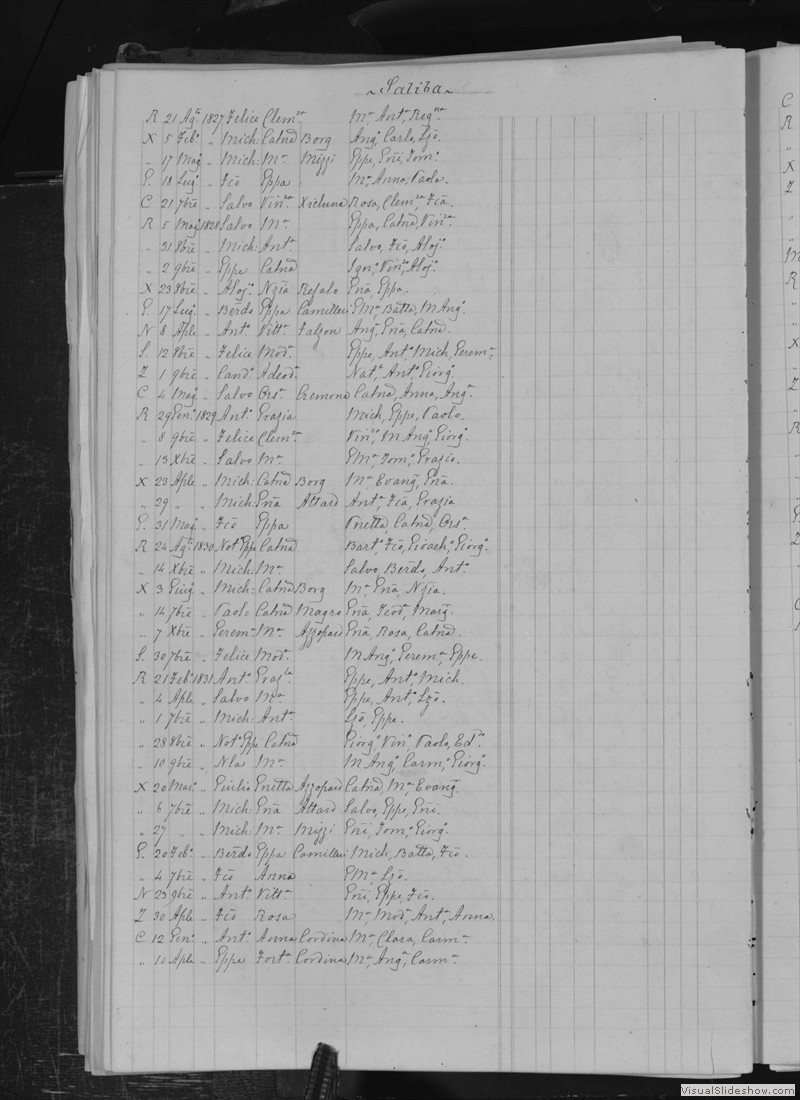 ~ Saliba ~
R 21 Agᵒ 1827 Felice Clemᶻᵃ Mᵃ, Antᵃ, Regⁿᵃ
X 5 Febᵒ " Mich: Catnā Borg Angᵒ, Carlo, Lzō.
" 17 Mag " Mich: Mᵃ Mizzi Eppe, Gnī, Tomᵒ
G. 18 Lugᵒ " Fcō Eppa Mᵃ, Anna, Paola.
C 21 7bre " Salvo Vinᶻᵃ Xicluna Rosa, Clemᶻᵃ, Fca.
R 5 Mag 1828 Salvo Mᵃ Eppa, Catnā, Vinᶻᵃ
" 31 8bre " Mich: Antᵃ Salvo, Fcō, Alojᵒ
" 2 9bre " Eppe Catnā Ignᵒ, Vinᶻᵒ, Alojᵒ
X 23 8bre " Alojᵒ Nzia Refalo Gnā, Eppa.
G. 17 Lugᵒ " Berdo Eppa Camilleri GMᵃ, Batta, M Angᵒ
N 8 Aple " Antᵒ Vittᵃ Falzon Angᵃ, Gnā, Catnā.
S. 12 8bre " Felice Modᵃ Eppe, Antᵒ, Mich, Geremᵃ
Z 1 9bre " Candᵒ Adeodᵃ Natᵒ, Antᵒ, Giorgᵒ
C 4 Mag " Salvo Orsᵃ Cremona Catnā, Anna, Angᵃ
R 29 Genᵒ 1829 Antᵒ Grazia Mich, Eppe, Paolo.
" 8 9bre " Felice Clemᶻᵃ Vinᶻᵒ, M Angᵒ, Giorgᵒ
" 13 Xbre " Salvo Mᵃ GMᵃ, Tomᵒ, Grazio.
X 23 Aple " Mich: Catnā Borg Mᵃ Evang, Gnā.
" 29 " " Mich: Gnā Attard Antᵃ, Fca, Grazia
G. 31 Mag " Fcō Eppa Pnetta, Catnā, Orsᵃ
R 24 Agᵒ 1830 Notᵒ Eppe Catnā Bartᵒ, Fcō, Gioachᵒ, Giorgᵒ
" 14 Xbre " Mich: Mᵃ Salvo, Berdo, Antᵒ
X 3 Giugᵒ " Mich: Catnā Borg Mᵃ, Gnā, Nzia.
" 14 7bre " Paolo Catnā Magro Gnā, Teodᵃ, Marg.
" 7 Xbre " Geremᵃ Mᵃ Azzopard Gnā, Rosa, Catnā.
S. 30 7bre " Felice Modᵃ M Angᵒ, Geremᵃ, Eppe.
R 21 Febᵒ 1831 Antᵒ Grazᵃ Eppe, Antᵒ, Mich.
" 4 Aple " Salvo Mᵃ Eppe, Antᵒ, Lzō.
" 1 7bre " Mich: Antᵃ Lzō, Eppe.
" 28 8bre " Notᵒ Eppe Catnā Giorgᵒ, Vinᵒ, Paolo, Edᵈᵒ
" 10 9bre " Nla Mᵃ M Angᵒ, Carmᵒ, Giorgᵒ
X 20 Marᵒ " Giulio Gnetta Azzopard Catnā, Mᵃ, Evang.
" 6 7bre " Mich: Gnā Attard Salvo, Eppe, Gnī.
" 27 " " Mich: Mᵃ Mizzi Gnī, Tomᵒ, Giorgᵒ
G. 20 Febᵒ " Berdo Eppa Camilleri Mich, Batta, Fcō.
" 4 7bre " Fcō Anna GMᵃ, Lzō.
N 23 9bre " Antᵒ Vittᵃ Gnī, Eppe, Fcō.
Z 30 Aple " Fcō Rosa Mᵃ, Modᵃ, Antᵃ, Anna.
C 12 Genᵒ " Antᵒ Anna Cordina Mᵃ, Clara, Carmᵃ
" 10 Aple " Eppe Fortᵃ Cordina Mᵃ, Angᵃ, Carmᵃ
VisualSlideshow.com